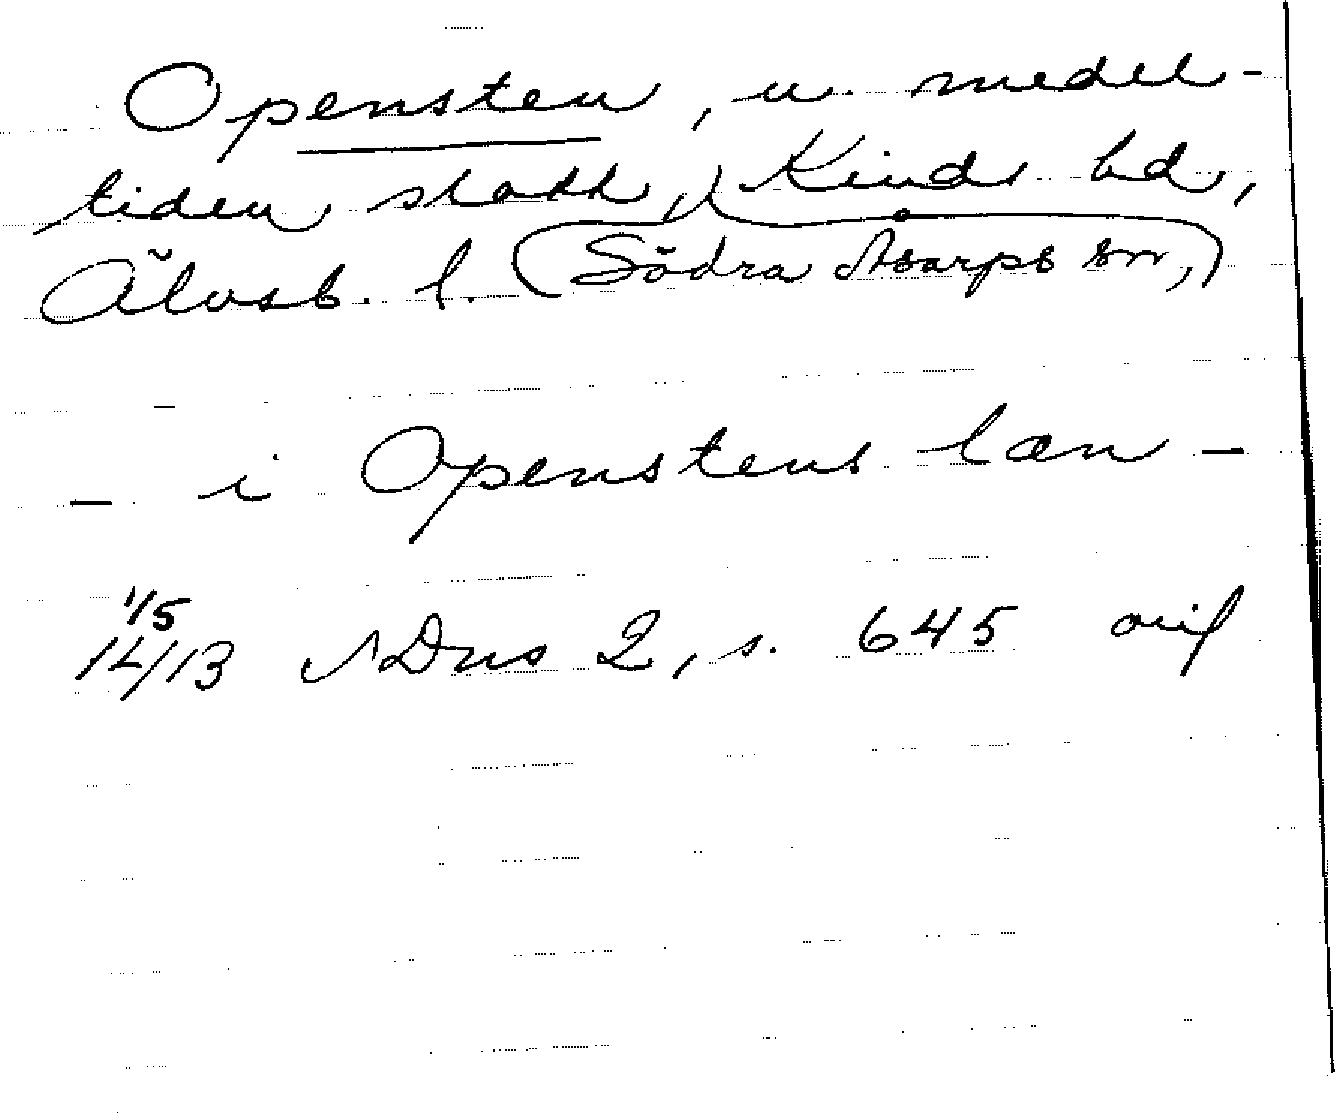 Opensten, u. medel-
tiden slott, Kinds hd,
Älvsb. l. (Södra Åsarps sn,)
- i Openstens læn -
1/5
1413 NDns 2, s. 645 orig